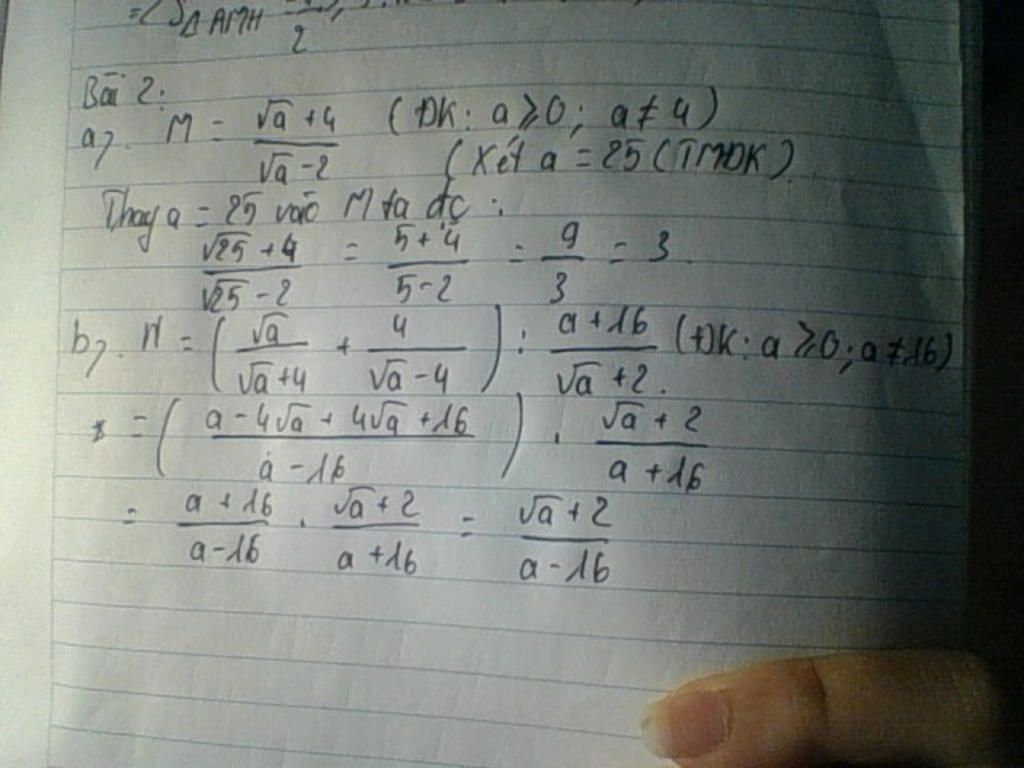 => S△AMH /2
Bài 2:
a). M = (√a + 4)/(√a - 2) (ĐK: a ≥ 0; a ≠ 4)
(Xét a = 25 (TMĐK)
Thay a = 25 vào M ta đc :
(√25 + 4)/(√25 - 2) = (5 + 4)/(5 - 2) = 9/3 = 3.
b). N = (√a/(√a + 4) + 4/(√a - 4)) : (a + 16)/(√a + 2). (ĐK: a ≥ 0; a ≠ 16)
= ((a - 4√a + 4√a + 16)/(a - 16)) . (√a + 2)/(a + 16)
= (a + 16)/(a - 16) . (√a + 2)/(a + 16) = (√a + 2)/(a - 16)